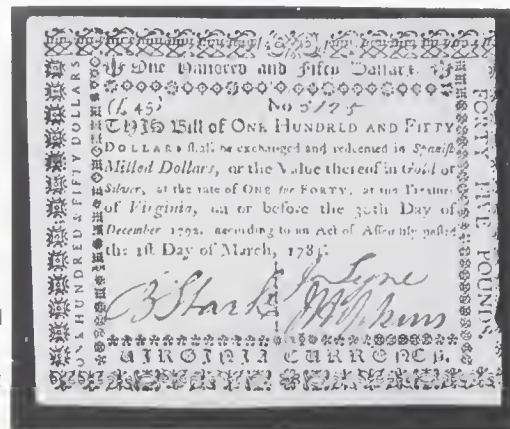 One Hundred and Fifty Dollars.
(£ 45) No 5125
THIS Bill of ONE HUNDRED AND FIFTY
DOLLARS shall be exchanged and redeemed in Spanish
Milled Dollars, or the Value thereof in Gold or
Silver, at the rate of ONE for FORTY, at the Treasury
of Virginia, on or before the 30th Day of
December 1792, according to an Act of Assembly passed
the 1st Day of March, 1781.
B Stark Jn Lyne
VIRGINIA CURRENCY.
ONE HUNDRED & FIFTY DOLLARS
FORTY FIVE POUNDS.